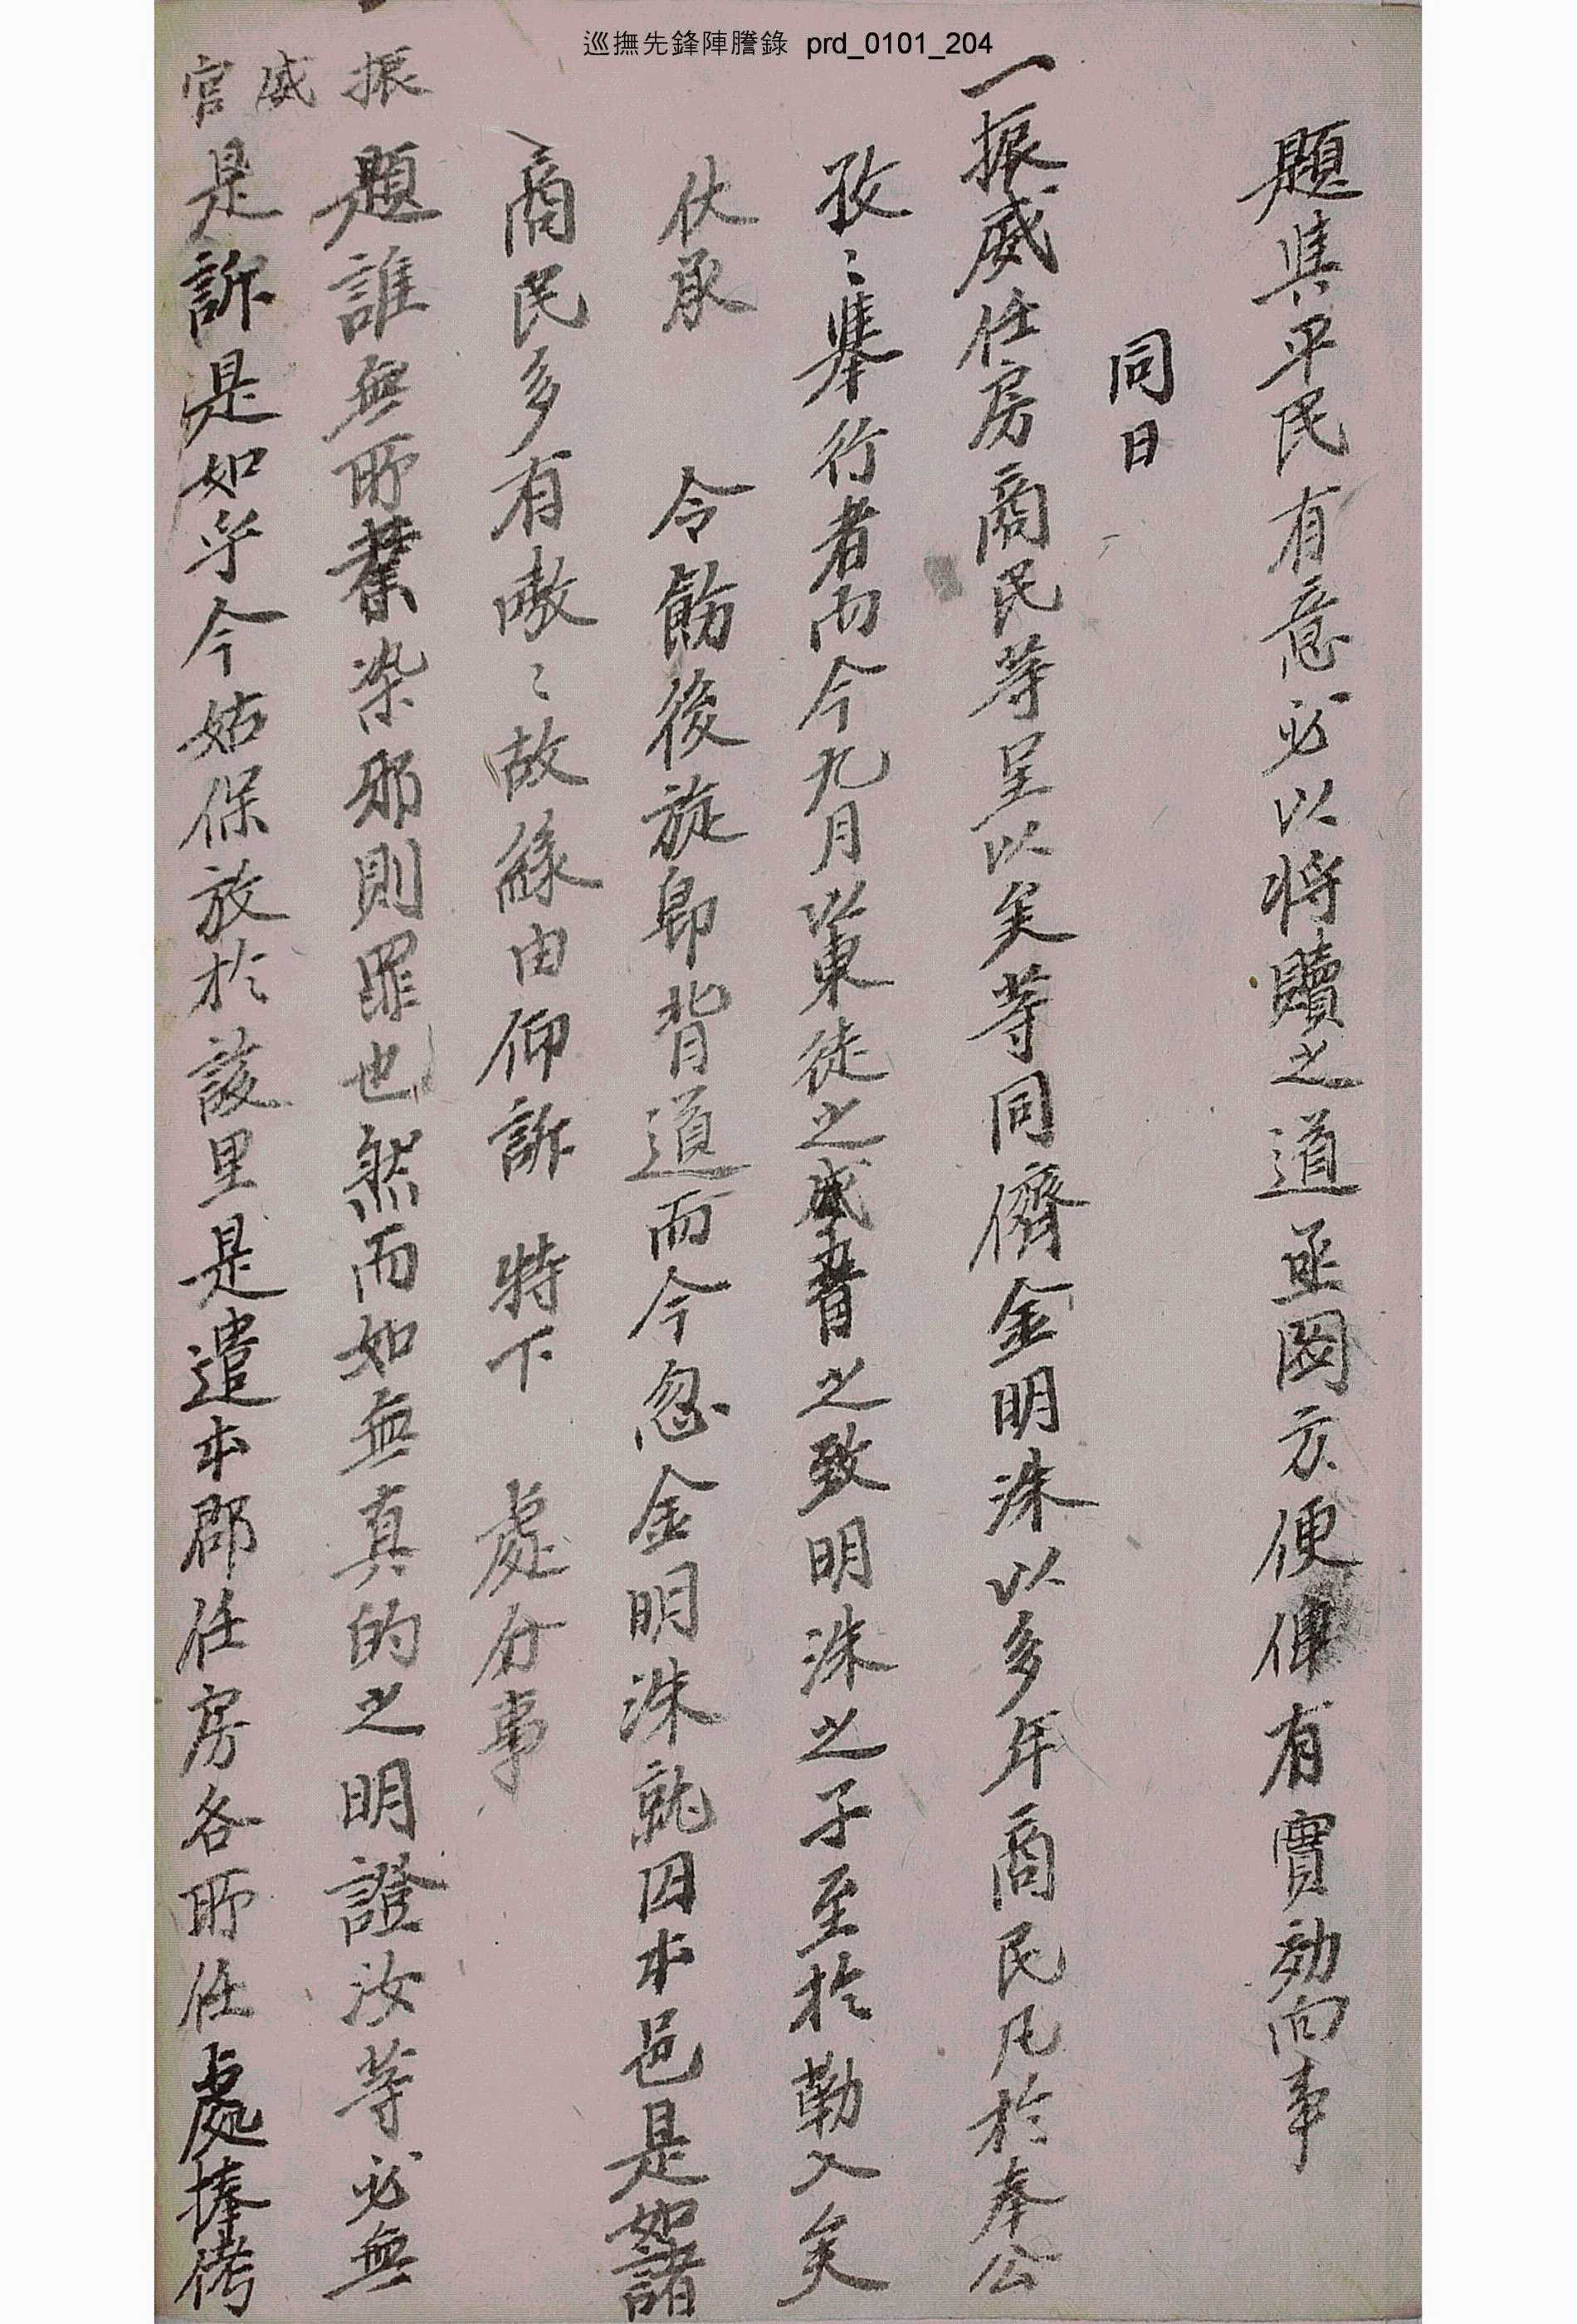 巡撫先鋒陣謄錄 prd_0101_204
題其平民有意必以將贖之道亟圖方便俾有實効向事
同日
一振威任房商民等呈以矣等同儕金明洙以多年商民凡於奉公
孜〻舉行者而今九月以東徒之威脅之致明洙之子至於勒入矣
伏承 令飭後旋卽背道而今忽金明洙就囚本邑是如諸
商民多有嗷〻故緣由仰訴 特下 處分事
題誰無所業染邪則罪也然而如無真的之明證汝等必無
是訴是如乎今姑保放於該里是遣本郡任房各所任處捧侤
振威官